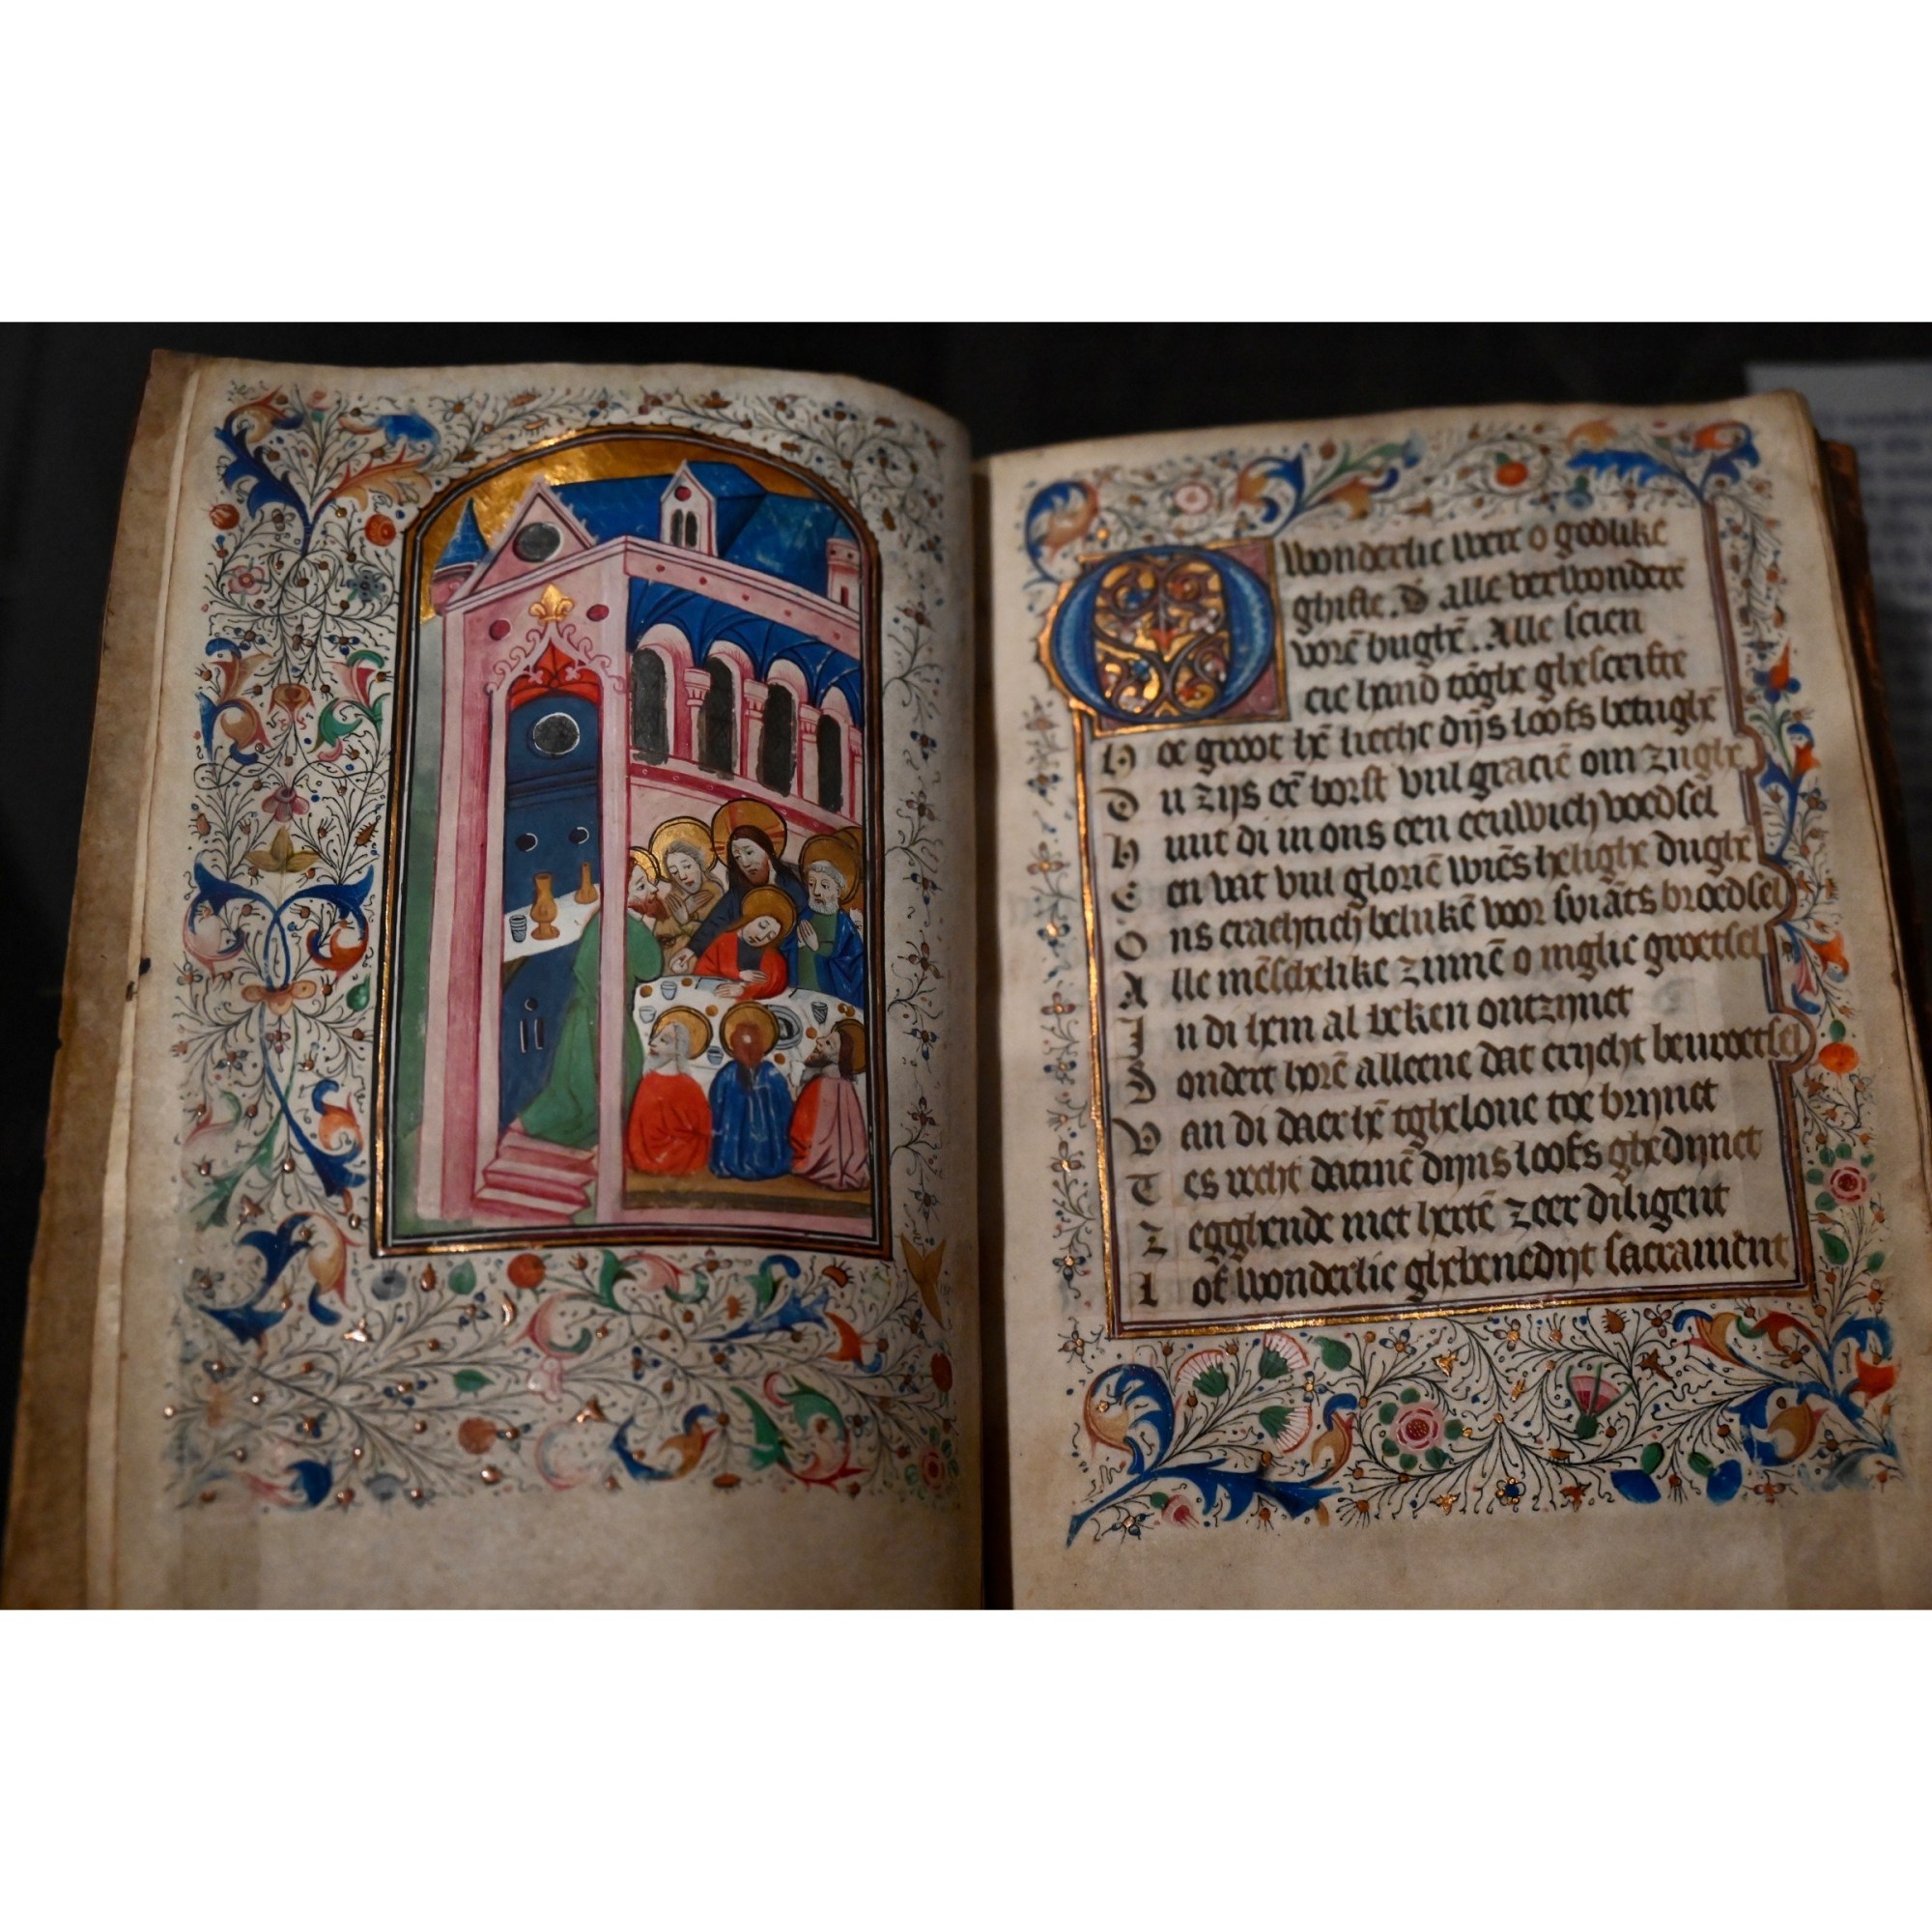 O Wonderlic Werc o godlike
ghifte. Di alle verwonderē
vorē bughē. Alle scien
cie hand toghe ghescrifte
Hoe groot hē lieche dijs loofs betughē
Du zijs eē borst vul graciē om zughē
Huut di in ons een eeuwich voedsel
En vat vul gloriē wiēs helighe dughē
Ons crachtich beluikē voor sviants broedsel
Alle mēschelike zinnē o inglic groetsel
In di hem al beken ontzinct
Sondere horē alleene dat crijcht bemoetsel
Van di daer hē tghelove toe bringt
Tes recht datmē dijns loofs ghedinct
Zegghende met hertē zeer diligent
Lof wonderlic ghebenedijt sacrament